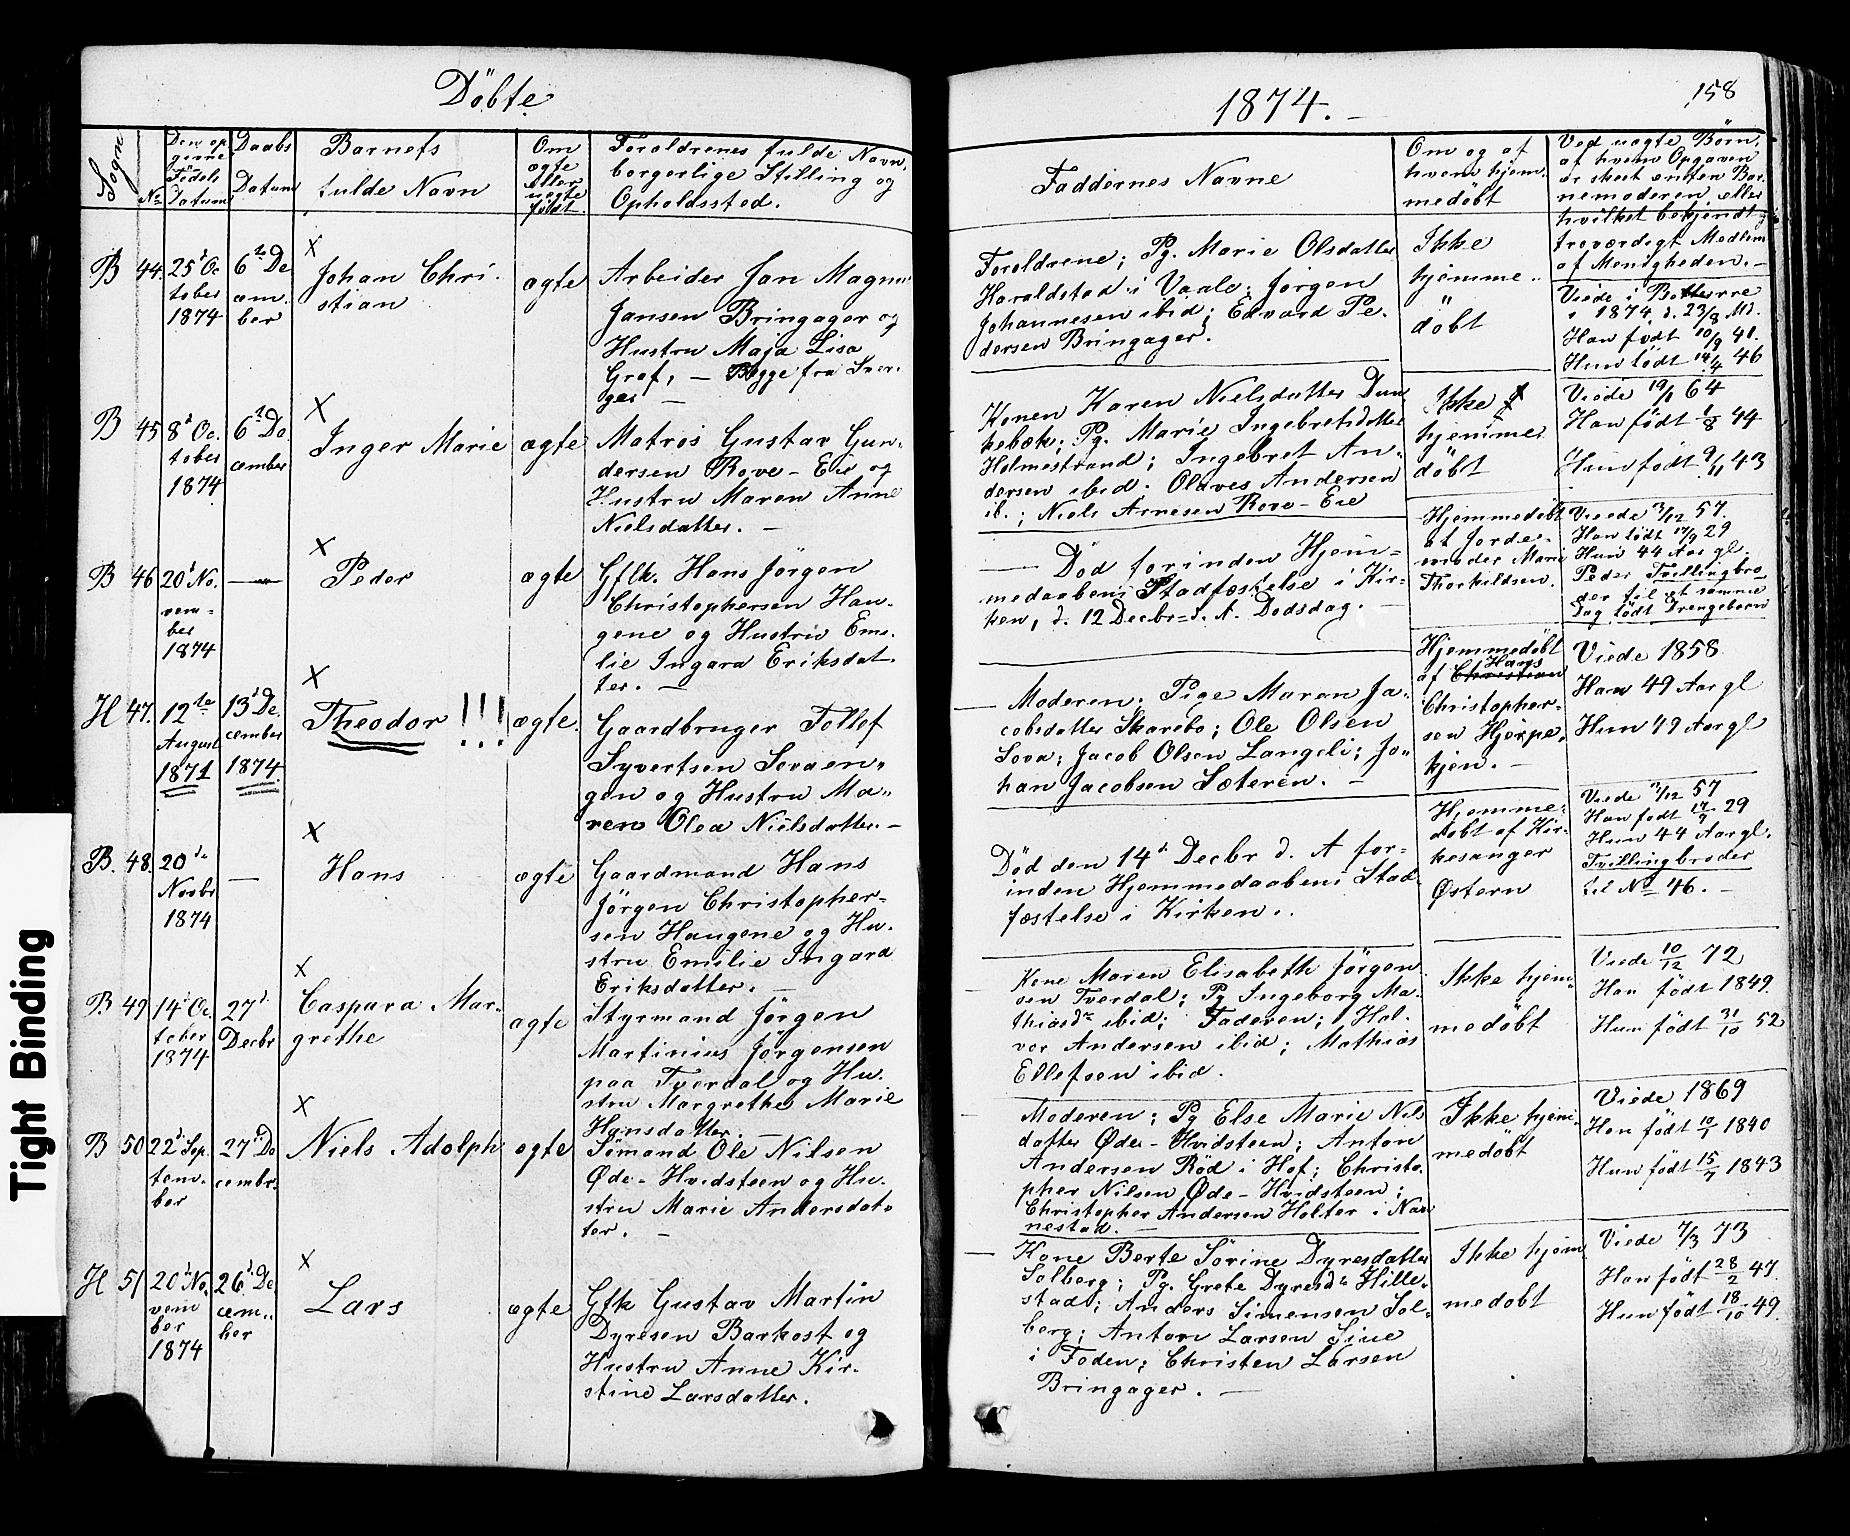 Döbte
1874.
158
Sogne
№
Den op
givne
Födsels
Datum
Daabs
Datum
Barnets
fulde Navn
Om
ægte
eller
uægte
födt.
Forældrenes fulde Navn,
borgerlige Stilling og
Opholdssted.
Faddernes Navne
Om og af
hvem hjem-
medöbt
Ved uægte Börn,
af hvem Opgaven
er skeet enten Bar-
nemoderen eller
hvilket bekjendt
troværdigt Medlem
af Menigheden.
B 44.
25de Oc
tober
1874
6te De
cem-
ber
X
Johan Chri-
stian
ægte
Arbeider Jan Magnu
Jansen Bringager og
Hustru Maja Lisa
Graf, — Begge fra Sver-
ges —
Forældrene; Pg. Marie Olsdatter
Haraldstad i Vaale; Jörgen
Johannesen ibid; Edvard Pe-
dersen Bringager.
Ikke
hjemme-
döbt
Viede i Botterre
i 1874 d. 23/8
Han födt 10/9 41.
Hun födt 14/4 46
B 45
8de Oc-
tober
1874
6te De
cember
X
Inger Marie
ægte
Matros Gustav Gun-
dersen Rove-Eie og
Hustru Maren Anne
Nielsdatter. —
Konen Karen Nielsdatter Dun
kebæk; Pg. Marie Ingebretsdatter
Holmestrand; Ingebret An-
dersen ibid. Olaves Andersen
ib.; Niels Arnesen Rove-Eie
Ikke
hjemme
döbt
Viede 19/1 64
Han födt 1/8 44
Hun födt 9/11 43
B 46
20de No-
vem-
ber
1874
—
X
Peder
ægte
Gflk. Hans Jörgen
Christophersen Hau-
gene og Hustru Emi-
lie Ingara Eriksdat-
ter. —
— Död forinden Hjem-
medaabens Stadfæstelse i Kir-
ken, d. 12 Decbr d. A. Dödsdag. —
Hjemmedöbt
af Jorde-
moder Marie
Thorkildsen.
Viede 13/12 57.
Han födt 17/9 29
Hun 44 Aar gl.
Peder Tvillingbro-
der til et samme
Dag födt Drengebarn
H 47.
12te
August
1871
13de De
cember
1874
X
Theodor !!!
ægte.
Gaardbruger Tollef
Syvertsen Sovaen-
gen og Hustru Ma-
ren Olea Nielsdatter. —
— Moderen; Pige Maren Ja-
cobsdatter Skarebo; Ole Olsen
Sova; Jacob Olsen Langeli; Jo-
han Jacobsen Sæteren. —
Hjemmedöbt
Hans
af Christian
Christopher-
sen Hjerpe-
kjen. —
Viede 1858
Han 49 Aar gl
Hun 49 Aar gl
B. 48.
20de
Novbr
1874
—
X
Hans
ægte
Gaardmand Hans
Jörgen Christopher-
sen Haugene og Hu-
stru Emilie Ingara
Eriksdatter. —
Död den 14de Decbr d. A for-
inden Hjemmedaabens Stad-
fæstelse i Kirken.
Hjemme-
döbt af Kir-
kesanger
Østern
Viede 13/12 57
Han födt 17/9 29
Hun 44 Aar gl.
Tvillingbroder
til № 46. —
B 49
14de Oc
tober
1874
27de
Decbr
X
Caspara Mar-
grethe
ægte
Styrmand Jörgen
Martinius Jörgensen
paa Tverdal og Hu-
stru Margrethe Marie
Hansdatter. —
Kone Maren Elisabeth Jörgen
sen Tverdal; Pg Ingeborg Ma-
thiasdr ibid; Faderen; Hal-
vor Andersen ibid; Mathias
Ellefsen ibid.
Ikke hjem-
medöbt
Viede 10/12 72
Han födt 1849.
Hun födt 31/10 52
B 50
22de Sep-
tem-
ber
27de De
cembr.
X
Niels Adolph
ægte
Sömand Ole Nilsen
Øde-Hvidsteen og Hu-
stru Marie Andersdat-
ter. —
Moderen; Pg Else Marie Nils
datter Øde-Hvidsteen; Anton
Andersen Röd i Hof; Christo-
pher Nilsen Øde-Hvidsteen;
Christopher Andersen Holter i Nar
nestad.
Ikke hjem-
medöbt
Viede 1869
Han födt 10/1 1840
Hun födt 15/7 1843
H 51
20de No-
vem
ber
1874
26de De
cem-
ber
X
Lars
ægte
Gflk Gustav Martin
Dyresen Barkost og
Hustru Anne Kir-
stine Larsdatter.
Kone Berte Sörine Dyresdatter
Solberg; Pg. Grete Dyresdr Hille-
stad; Anders Simensen Sol-
berg; Anton Larsen Sine
i Foden; Christen Larsen
Bringager. —
Ikke hjem
medöbt
Viede 7/3 73
Han födt 28/2 47.
Hun födt 18/10 49.
Tight Binding